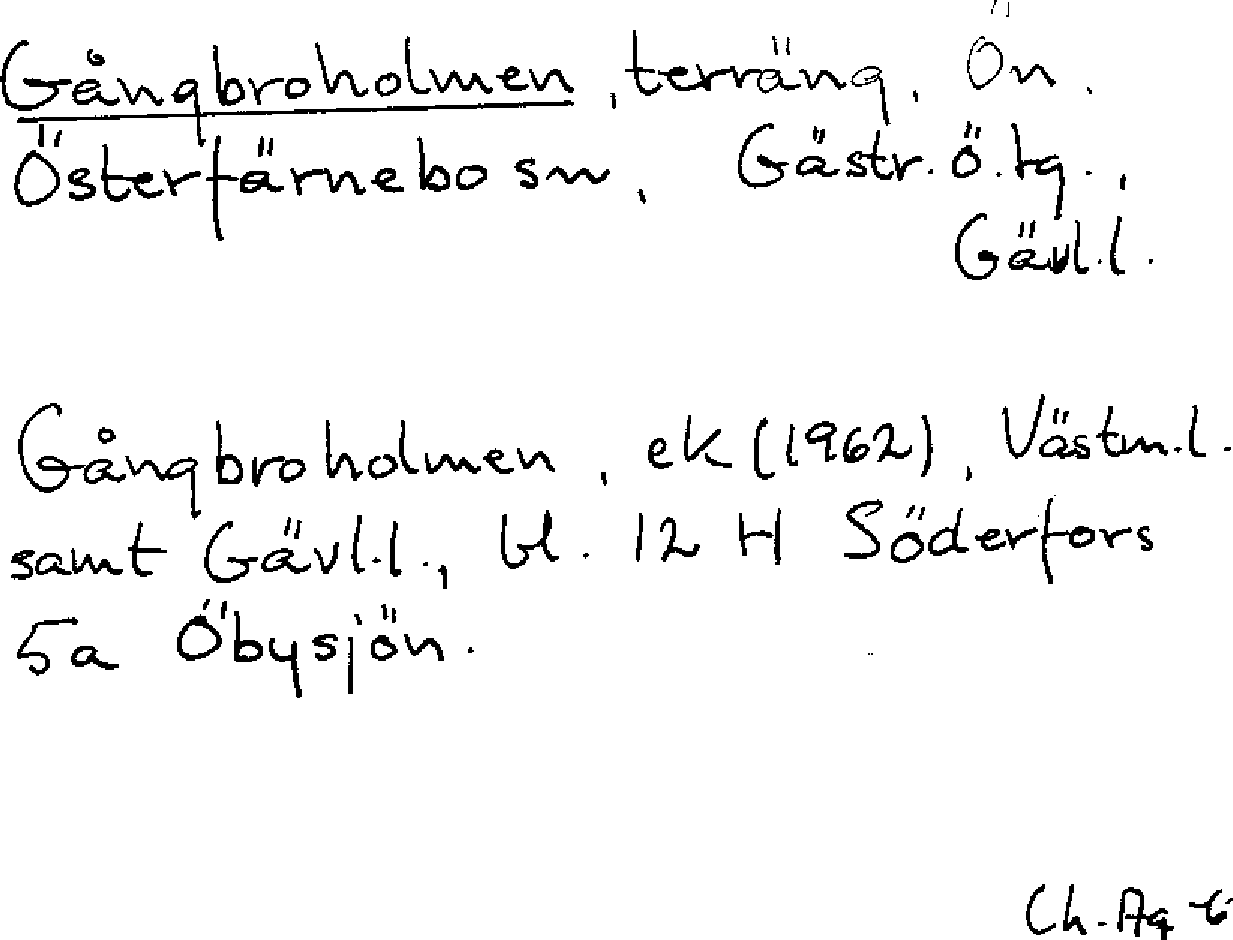 Gångbroholmen, terräng, Ön.
Österfärnebo sn, Gästr. ö. tg.,
Gävl.l.
Gångbroholmen, ek (1962), Västm.l.
samt Gävl.l., bl. 12 H Söderfors
5a Öbysjön.
Ch. Ag